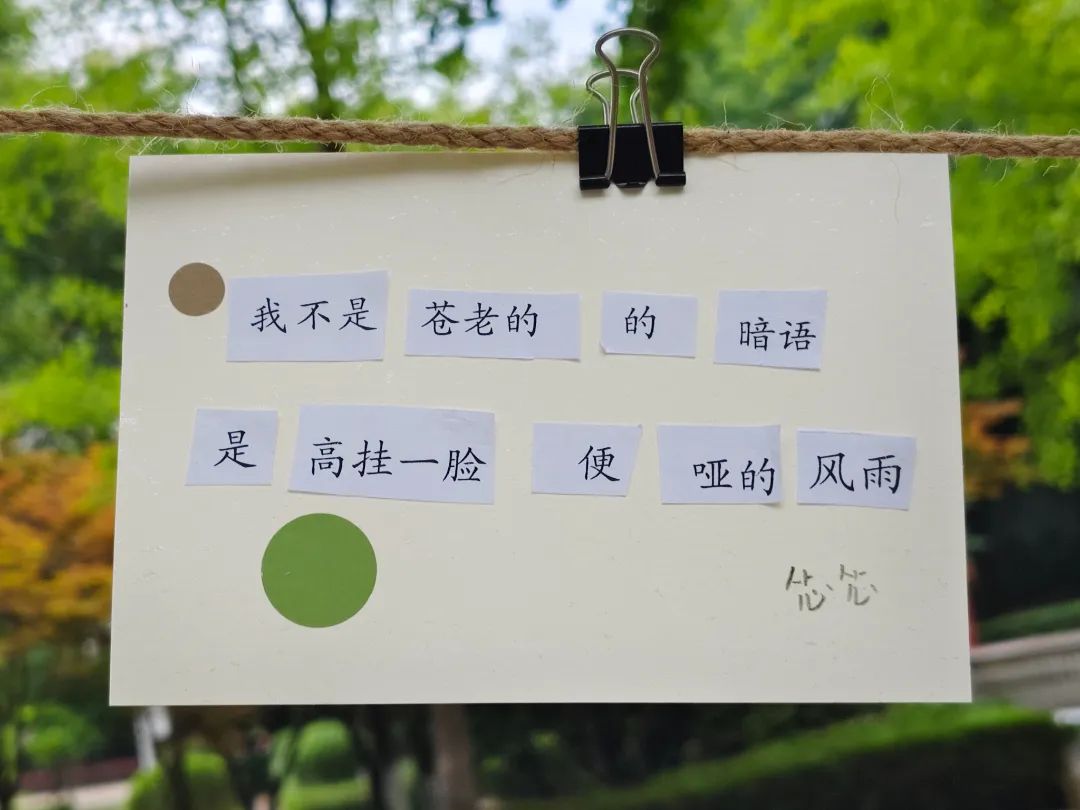 我不是 苍老的 的 暗语
是 高挂一脸 便 哑的 风雨